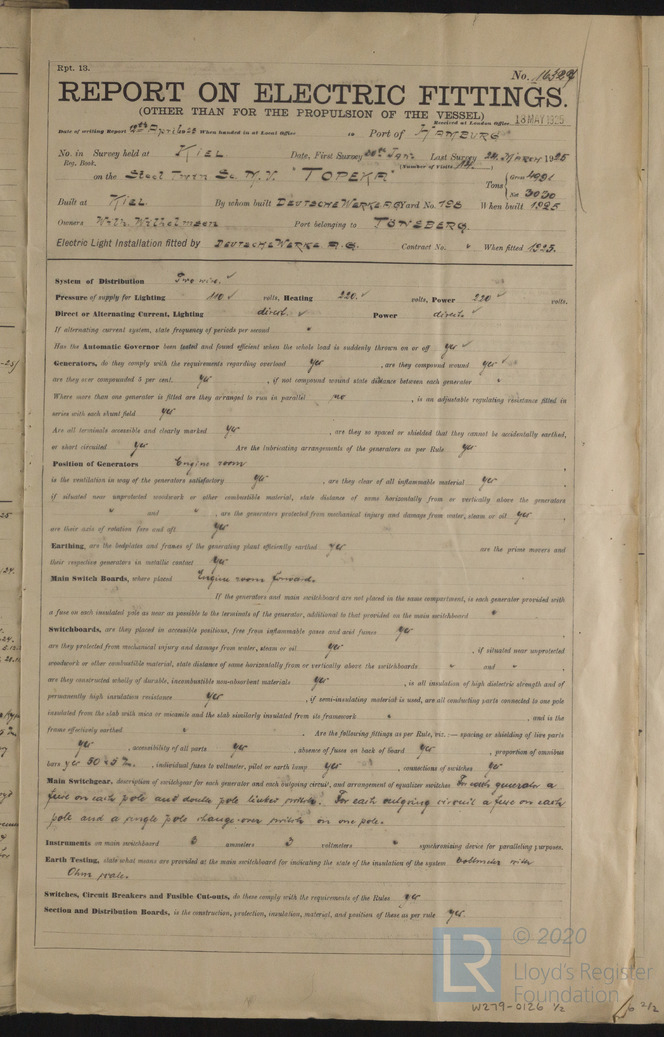 Rpt. 13.
No. 16529
REPORT ON ELECTRIC FITTINGS.
(OTHER THAN FOR THE PROPULSION OF THE VESSEL)
Received at London Office 13 MAY 1925
Date of writing Report April 1925 When handed in at Local Office to Port of HAMBURG
No. in Survey held at KIEL Date, First Survey Jan. Last Survey March 1925
Reg. Book. (Number of Visits
on the Steel Twin Sc. M.V. "TOPEKA" Tons { Gross 4991 Net 3030
Built at KIEL By whom built DEUTSCHE WERKE A.G. Yard No. When built 1925
Owners Wilh. Wilhelmsen Port belonging to TÖNSBERG.
Electric Light Installation fitted by DEUTSCHE WERKE A.G. Contract No. " When fitted 1925.
System of Distribution Two wire. ✓
Pressure of supply for Lighting 110 ✓ volts, Heating 220. ✓ volts, Power 220 ✓ volts.
Direct or Alternating Current, Lighting direct. ✓ Power direct. ✓
If alternating current system, state frequency of periods per second "
Has the Automatic Governor been tested and found efficient when the whole load is suddenly thrown on or off yes ✓
Generators, do they comply with the requirements regarding overload yes, are they compound wound yes ✓
are they over compounded 5 per cent. yes, if not compound wound state distance between each generator "
Where more than one generator is fitted are they arranged to run in parallel no, is an adjustable regulating resistance fitted in
series with each shunt field yes
Are all terminals accessible and clearly marked yes, are they so spaced or shielded that they cannot be accidentally earthed,
or short circuited yes Are the lubricating arrangements of the generators as per Rule yes
Position of Generators Engine room
is the ventilation in way of the generators satisfactory yes, are they clear of all inflammable material yes,
if situated near unprotected woodwork or other combustible material, state distance of same horizontally from or vertically above the generators
" and ", are the generators protected from mechanical injury and damage from water, steam or oil yes,
are their axis of rotation fore and aft yes
Earthing, are the bedplates and frames of the generating plant efficiently earthed yes are the prime movers and
their respective generators in metallic contact yes
Main Switch Boards, where placed Engine room forward.
If the generators and main switchboard are not placed in the same compartment, is each generator provided with
a fuse on each insulated pole as near as possible to the terminals of the generator, additional to that provided on the main switchboard "
Switchboards, are they placed in accessible positions, free from inflammable gases and acid fumes yes,
are they protected from mechanical injury and damage from water, steam or oil yes, if situated near unprotected
woodwork or other combustible material, state distance of same horizontally from or vertically above the switchboards " and ",
are they constructed wholly of durable, incombustible non-absorbent materials yes, is all insulation of high dielectric strength and of
permanently high insulation resistance yes, if semi-insulating material is used, are all conducting parts connected to one pole
insulated from the slab with mica or micanite and the slab similarly insulated from its framework ", and is the
frame effectively earthed ". Are the following fittings as per Rule, viz.:— spacing or shielding of live parts
yes, accessibility of all parts yes, absence of fuses on back of board yes, proportion of omnibus
bars yes, individual fuses to voltmeter, pilot or earth lamp yes, connections of switches yes
Main Switchgear, description of switchgear for each generator and each outgoing circuit, and arrangement of equalizer switches For each generator a
fuse on each pole and double pole linked switch. For each outgoing circuit a fuse on each
pole and a single pole change-over switch on one pole.
Instruments on main switchboard ammeters 3 voltmeters " synchronising device for paralleling purposes.
Earth Testing, state what means are provided at the main switchboard for indicating the state of the insulation of the system Voltmeter with
Ohm scale.
Switches, Circuit Breakers and Fusible Cut-outs, do these comply with the requirements of the Rules yes
Section and Distribution Boards, is the construction, protection, insulation, material, and position of these as per rule yes.
LR
© 2020
Lloyd's Register
Foundation
W279-0126 1/2
6 2/2